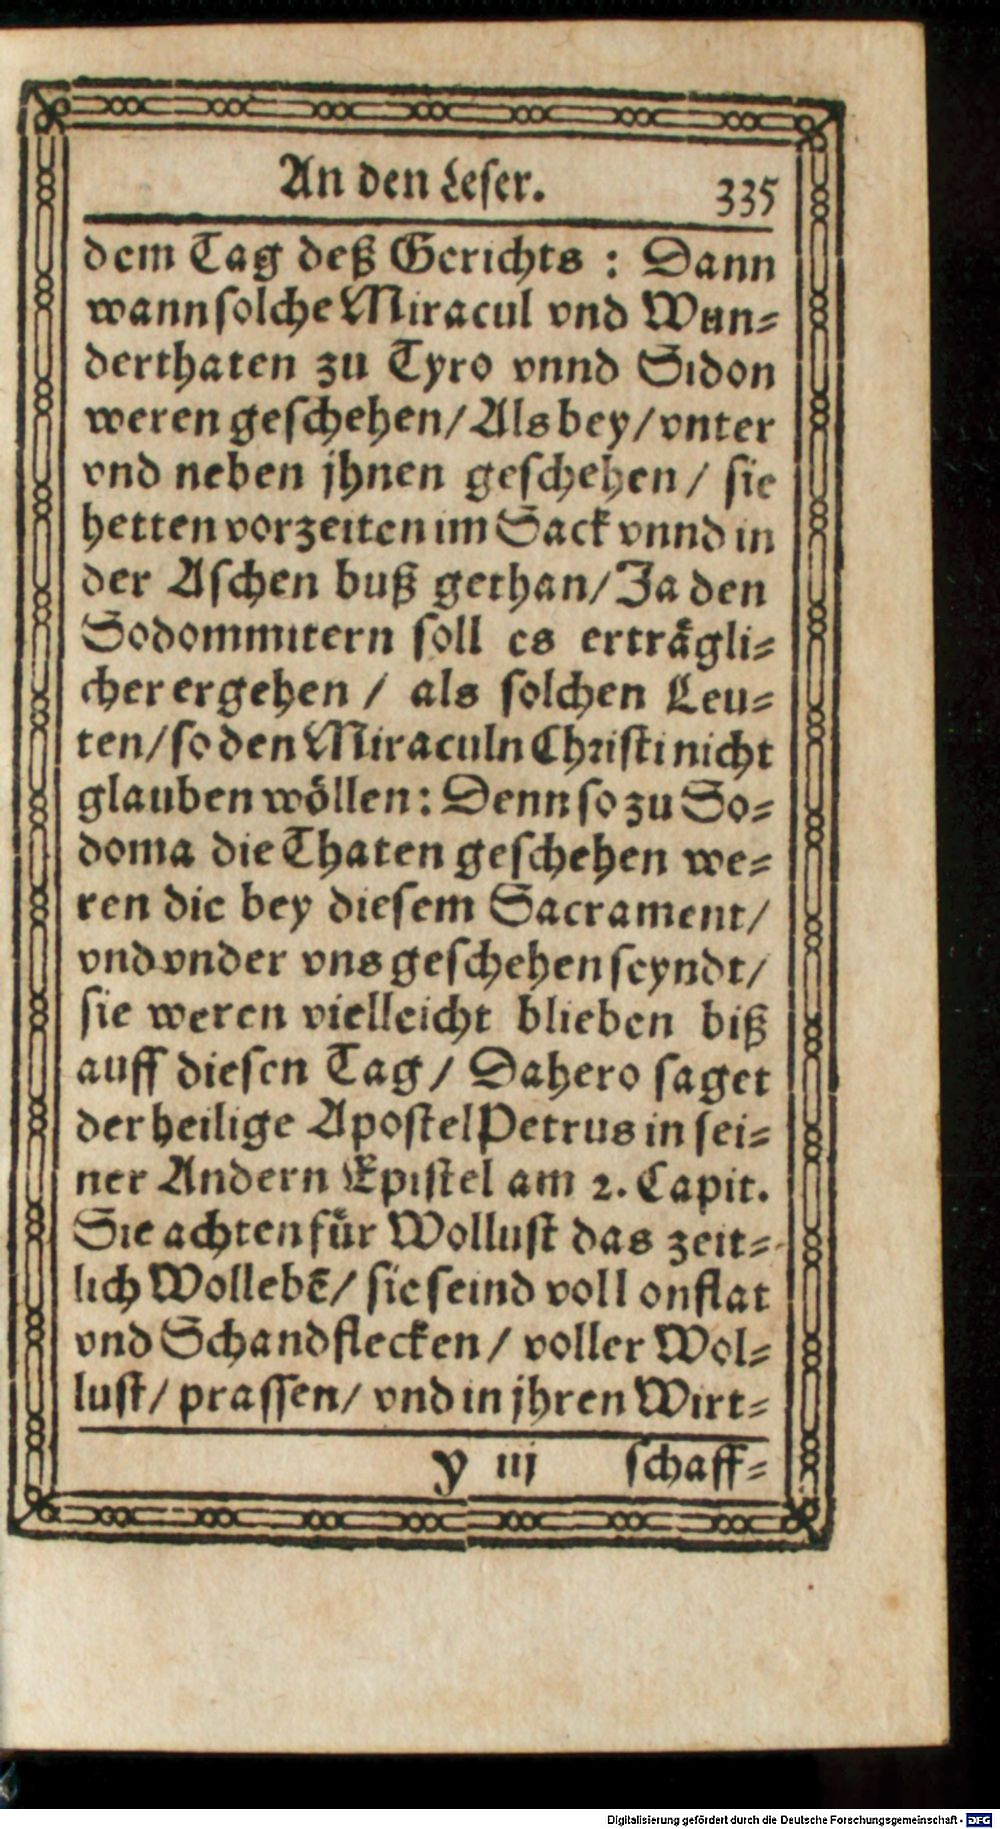 An den Leser. 335
dem Tag deß Gerichts : Dann
wann solche Miracul vnd Wun⸗
derthaten zu Tyro vnnd Sidon
weren geschehen/ Als bey/ vnter
vnd neben jhnen geschehen/ sie
hetten vorzeiten im Sack vnnd in
der Aschen buß gethan/ Ja den
Sodommitern soll es erträgli⸗
cher ergehen / als solchen Leu⸗
ten/ so den Miraculn Christi nicht
glauben wöllen: Denn so zu So⸗
doma die Thaten geschehen we⸗
ren die bey diesem Sacrament/
vnd vnder vns geschehen seyndt/
sie weren vielleicht blieben biß
auff diesen Tag/ Dahero saget
der heilige Apostel Petrus in sei⸗
ner Andern Epistel am 2. Capit.
Sie achten für Wollust das zeit⸗
lich Wollebē/ sie seind voll onflat
vnd Schandflecken/ voller Wol⸗
lust/ prassen/ vnd in jhren Wirt⸗
y iij schaff⸗
Digitalisierung gefördert durch die Deutsche Forschungsgemeinschaft - DFG